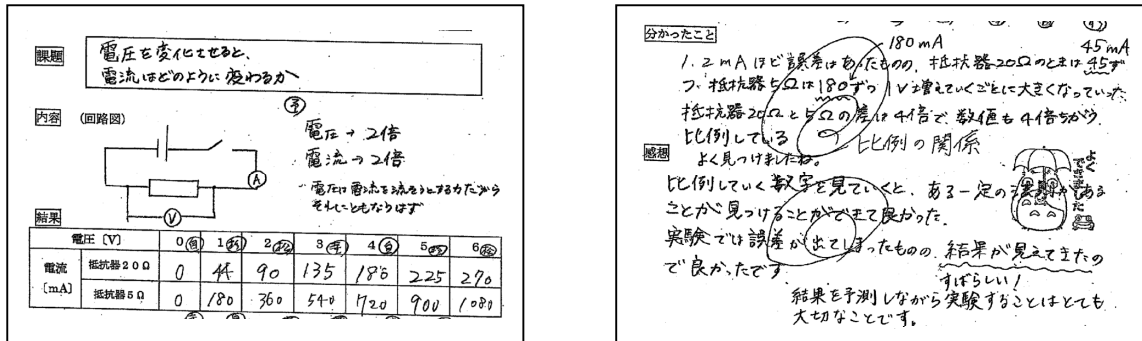 課題
電圧を変化させると、
電流はどのように変わるか
予
内容 (回路図)
電圧→2倍
電流→2倍
電圧は電流を流そうとする力だから
それにともなうはず
A
V
結果
電圧〔V〕 0 1 2 3 4 5 6
電流〔mA〕
抵抗器20Ω 0 45 90 135 180 225 270
抵抗器5Ω 0 180 360 540 720 900 1080
分かったこと
180mA
45mA
1、2mAほど誤差はあったものの、抵抗器20Ωのときは45ず
つ、抵抗器5Ωは180ずつ 1V増えていくごとに大きくなっていった
抵抗器20Ωと5Ωの差は4倍で、数値も4倍ちがう。
比例している
比例の関係
よく見つけましたね。
感想
よくできました
比例していく数字を見ていくと、ある一定の法則がある
ことが見つけることができて良かった。
実験では誤差が出てしまったものの、結果が見えてきたの
で良かったです
すばらしい!
結果を予測しながら実験することはとても
大切なことです。